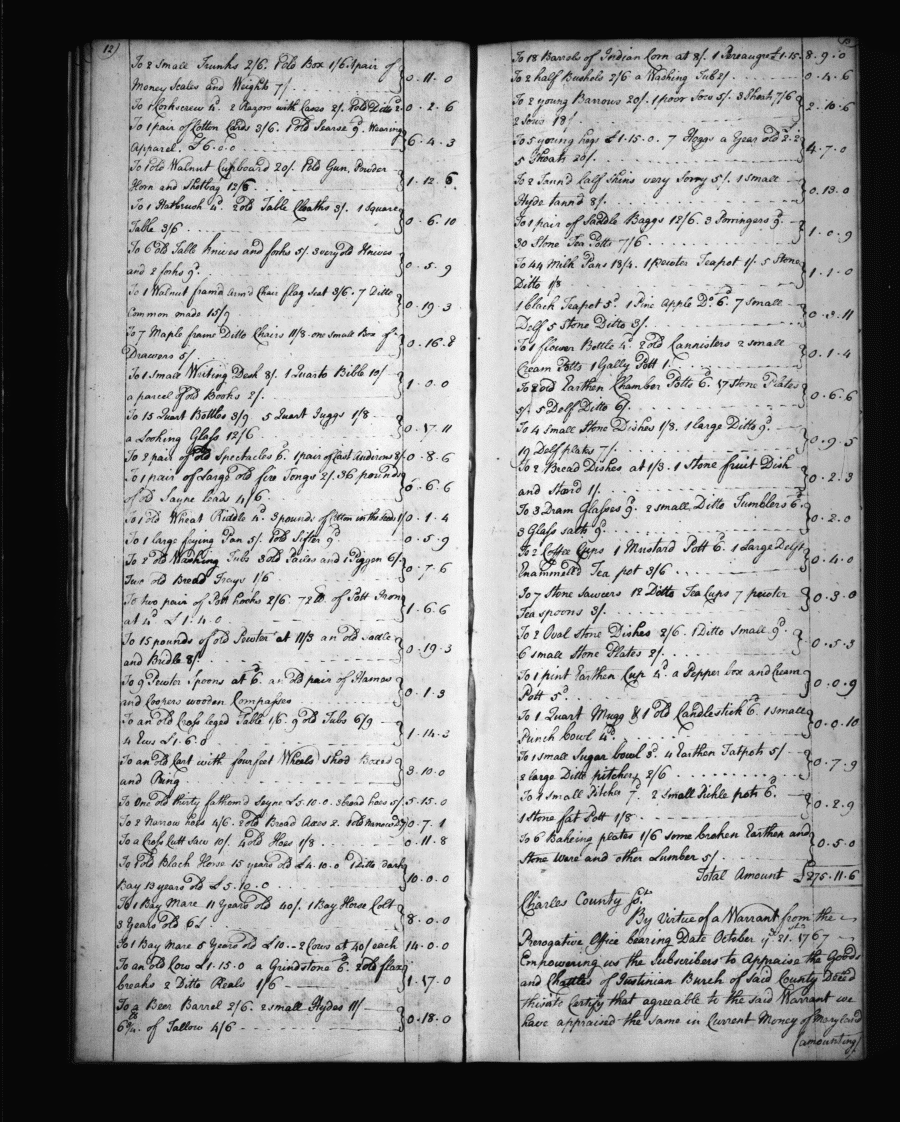 12)
To 2 Small Trunks 2/6. 1 old Box 1/6. 1 pair of
Money Scales and Weights 7/ 0.11.0
To 1 Corkscrew 4d. 2 Razors with Cases 2/. 1 old Ditto 2. 0.2.6
To 1 pair of Cotton Cards 3/6. 1 old Searse 9d. Wearing
Apparel. £6.0.0 6.4.3
To 1 old Walnut Cupboard 20/. 1 old Gun, Powder
Horn and Shotbag 12/6 1.12.6
To 1 Hatbrush 4d. 2 old Table Cloaths 3/. 1 Square
Table 3/6 0.6.10
To 6 old Table knives and forks 5/. 3 very old Knives
and 2 forks 9d. 0.5.9
To 1 Walnut fram'd Arm'd Chair flag Seat 3/6. 7 Ditto
Common made 15/9 0.19.3
To 7 Maple frame Ditto Chairs 11/8 one small Box of
Drawers 5/ 0.16.8
To 1 Small Writing Desk 8/. 1 Quarto Bible 10/
a parcel of old Books 2/. 1.0.0
To 15 Quart Bottles 3/9 5 Quart Juggs 1/8
a Looking Glass 12/6 0.17.11
To 2 pair of old Spectacles 6d. 1 pair of Cast Andirons 8/ 0.8.6
To 1 pair of Large old fire Tongs 2/. 36 pounds
of old Sayne leads 4/6 0.6.6
To 1 old Wheat Riddle 4d. 3 pounds of Cotton in the seed 1/ 0.1.4
To 1 large frying Pan 5/. 1 old Sifter 9d. 0.5.9
To 2 old Washing Tubs 3 old Pailes and 1 Piggen 6/.
Two old Bread Trays 1/6 0.7.6
To two pair of Pott hooks 2/6. 72 lb of Pott Irons
at 4d £1.4.0 1.6.6
To 15 pounds of old Pewter at 11/3 an old Sadle
and Bridle 8/. 0.19.3
To 9 Pewter Spoons at 6d. an old pair of Hames
and Coopers wooden Compasses 0.1.3
To an old Cross leged Table 1/6. 9 old Tubs 6/9
4 Ews £1.6.0 1.14.3
To an old Cart with four feet Wheels Shod Boxed
and Ring 3.10.0
To One old thirty fathom'd Seyne £5.10.0. 3 broad hoes 5/. 5.15.0
To 2 Narrow hoes 4/6. 2 old Broad Axes 2. 1 old Narrow 0.7.1
To a Cross Cutt Saw 10/. 4 old Hoes 1/8 0.11.8
To 1 old Black Horse 15 years old £4.10.0 1 Ditto dark
Bay 13 years old £5.10.0 10.0.0
To 1 Bay Mare 11 Years old 40/. 1 Bay Horse Colt
3 Years old 6£ 8.0.0
To 1 Bay Mare 5 Years old £10.. 2 Cows at 40/ each 14.0.0
To an old Cow £1.15.0 a Grindstone 6d. 2 old flax
breaks 2 Ditto Reals 1/6 1.17.0
To a Beer Barrel 2/6. 2 small Hydes 11/
of Tallow 4/6 0.18.0
13
To 18 Barrels of Indian Corn at 8/. 1 Pereauger £1.15. 8.9.0
To 2 half Bushels 2/6 a Washing Tub 2/. 0.4.6
To 2 young Barrows 20/. 1 poor Sow 5/. 3 Shoats 7/6
2 Sows 18/ 2.10.6
To 5 young hogs £1.15.0. 7 Hoggs a Year old 2.2
5 Shoats 20/. 4.7.0
To 2 Tann'd Calf Skins very Sorry 5/. 1 small
Hyde Tann'd 8/. 0.13.0
To 1 pair of Saddle Baggs 12/6. 3 Porringers 9d.
30 Stone Tea Potts 7/6 1.0.9
To 44 Milk Pans 18/4. 1 pewter Teapot 1/. 5 Stone
Ditto 1/8 1.1.0
1 black Teapot 5d. 1 Pine Apple Do. 6d. 7 small
Delf 5 Stone Ditto 3/. 0.3.11
To 1 flower Bottle 4d. 2 old Cannisters 2 small
Cream Potts 1 Gally Pott 1. 0.1.4
To 2 old Earthen Chamber Potts 6d. 17 Stone Plates
5/. 5 Delf Ditto 0.6.6
To 4 small Stone Dishes 1/8. 1 large Ditto 9d.
19 Delf plates 7/. 0.9.5
To 2 Bread Dishes at 1/3. 1 Stone fruit Dish
and Stand 1/. 0.2.3
To 3 Dram Glasses 9d. 2 small Ditto Tumblers 6d.
3 Glass salts 9d. 0.2.0
To 2 Coffee Cups 1 Mustard Pott 6d. 1 Large Delft
Enammelled Tea pot 3/6 0.4.0
To 7 Stone Sawcers 12 Ditto Tea Cups 7 pewter
Tea spoons 3/. 0.3.0
To 2 Oval Stone Dishes 2/6. 1 Ditto Small 9d.
6 small Stone Plates 2/. 0.5.3
To 1 pint Earthen Cup 4d. a Pepper box and Cream
Pott 5d. 0.0.9
To 1 Quart Mugg & 1 old Candlestick 6d. 1 small
Punch bowl 4d. 0.0.10
To 1 small Sugar bowl 3d. 4 Earthen Fatpots 5/
2 large Ditto pitchers 2/6 0.7.9
To 2 small Pitcher 7d. 2 small Pickle pots 6d.
1 Stone fat Pott 1/8 0.2.9
To 6 Bakeing plates 1/6 some broken Earthen and
Stone Ware and other Lumber 5/ 0.5.0
Total Amount £275.11.6
Charles County Ss.
By Virtue of a Warrant from the
Prerogative Office bearing Date October ye 21st 1767
Empowering us the Subscribers to Appraise the Goods
and Chattles of Justinian Burch of Said County Deced
this is to Certify that agreeable to the Said Warrant we
have appraised the Same in Current Money of Maryland
(amounting)